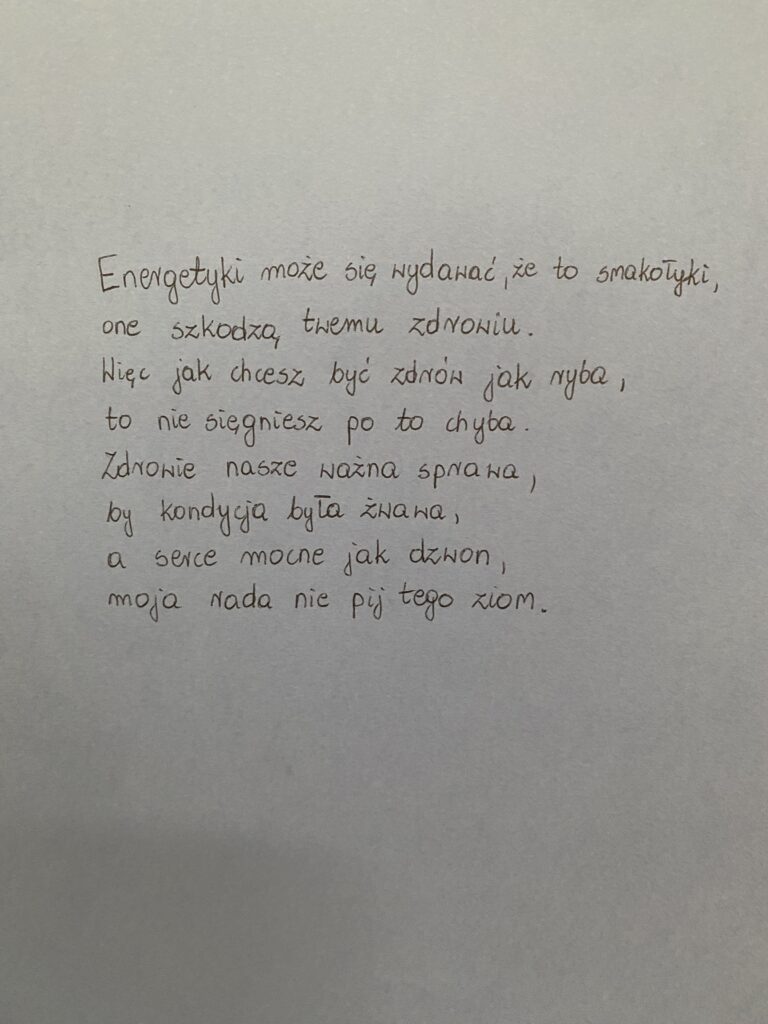 Energetyki może się wydawać, że to smakołyki,
one szkodzą twemu zdrowiu.
Więc jak chcesz być zdrów jak ryba,
to nie sięgniesz po to chyba.
Zdrowie nasze ważna sprawa,
by kondycja była żwawa,
a serce mocne jak dzwon,
moja rada nie pij tego ziom.